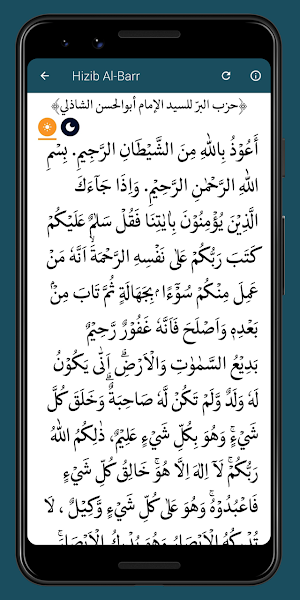 Hizib Al-Barr
﴿حزب البرّ للسيد الإمام أبوالحسن الشاذلي﴾
أَعُوْذُ بِاللهِ مِنَ الشَّيْطَانِ الرَّجِيْمِ. بِسْمِ
اللهِ الرَّحْمٰنِ الرَّحِيْمِ. وَاِذَا جَآءَكَ
الَّذِيْنَ يُؤْمِنُوْنَ بِاٰيٰتِنَا فَقُلْ سَلٰمٌ عَلَيْكُمْ
كَتَبَ رَبُّكُمْ عَلٰى نَفْسِهِ الرَّحْمَةَۙ اَنَّهٗ مَنْ
عَمِلَ مِنْكُمْ سُوْۤءًاۢ بِجَهَالَةٍ ثُمَّ تَابَ مِنْۢ
بَعْدِهٖ وَاَصْلَحَ فَاَنَّهٗ غَفُوْرٌ رَّحِيْمٌ
بَدِيْعُ السَّمٰوٰتِ وَالْاَرْضِۗ اَنّٰى يَكُوْنُ
لَهٗ وَلَدٌ وَّلَمْ تَكُنْ لَّهٗ صَاحِبَةٌۗ وَخَلَقَ كُلَّ
شَيْءٍۚ وَهُوَ بِكُلِّ شَيْءٍ عَلِيْمٌ. ذٰلِكُمُ اللهُ
رَبُّكُمْۚ لَآ اِلٰهَ اِلَّا هُوَۚ خَالِقُ كُلِّ شَيْءٍ
فَاعْبُدُوْهُۚ وَهُوَ عَلٰى كُلِّ شَيْءٍ وَّكِيْلٌ. لَا
تُدْرِكُهُ الْاَبْصَارُ وَهُوَ يُدْرِكُ الْاَبْصَارَۚ